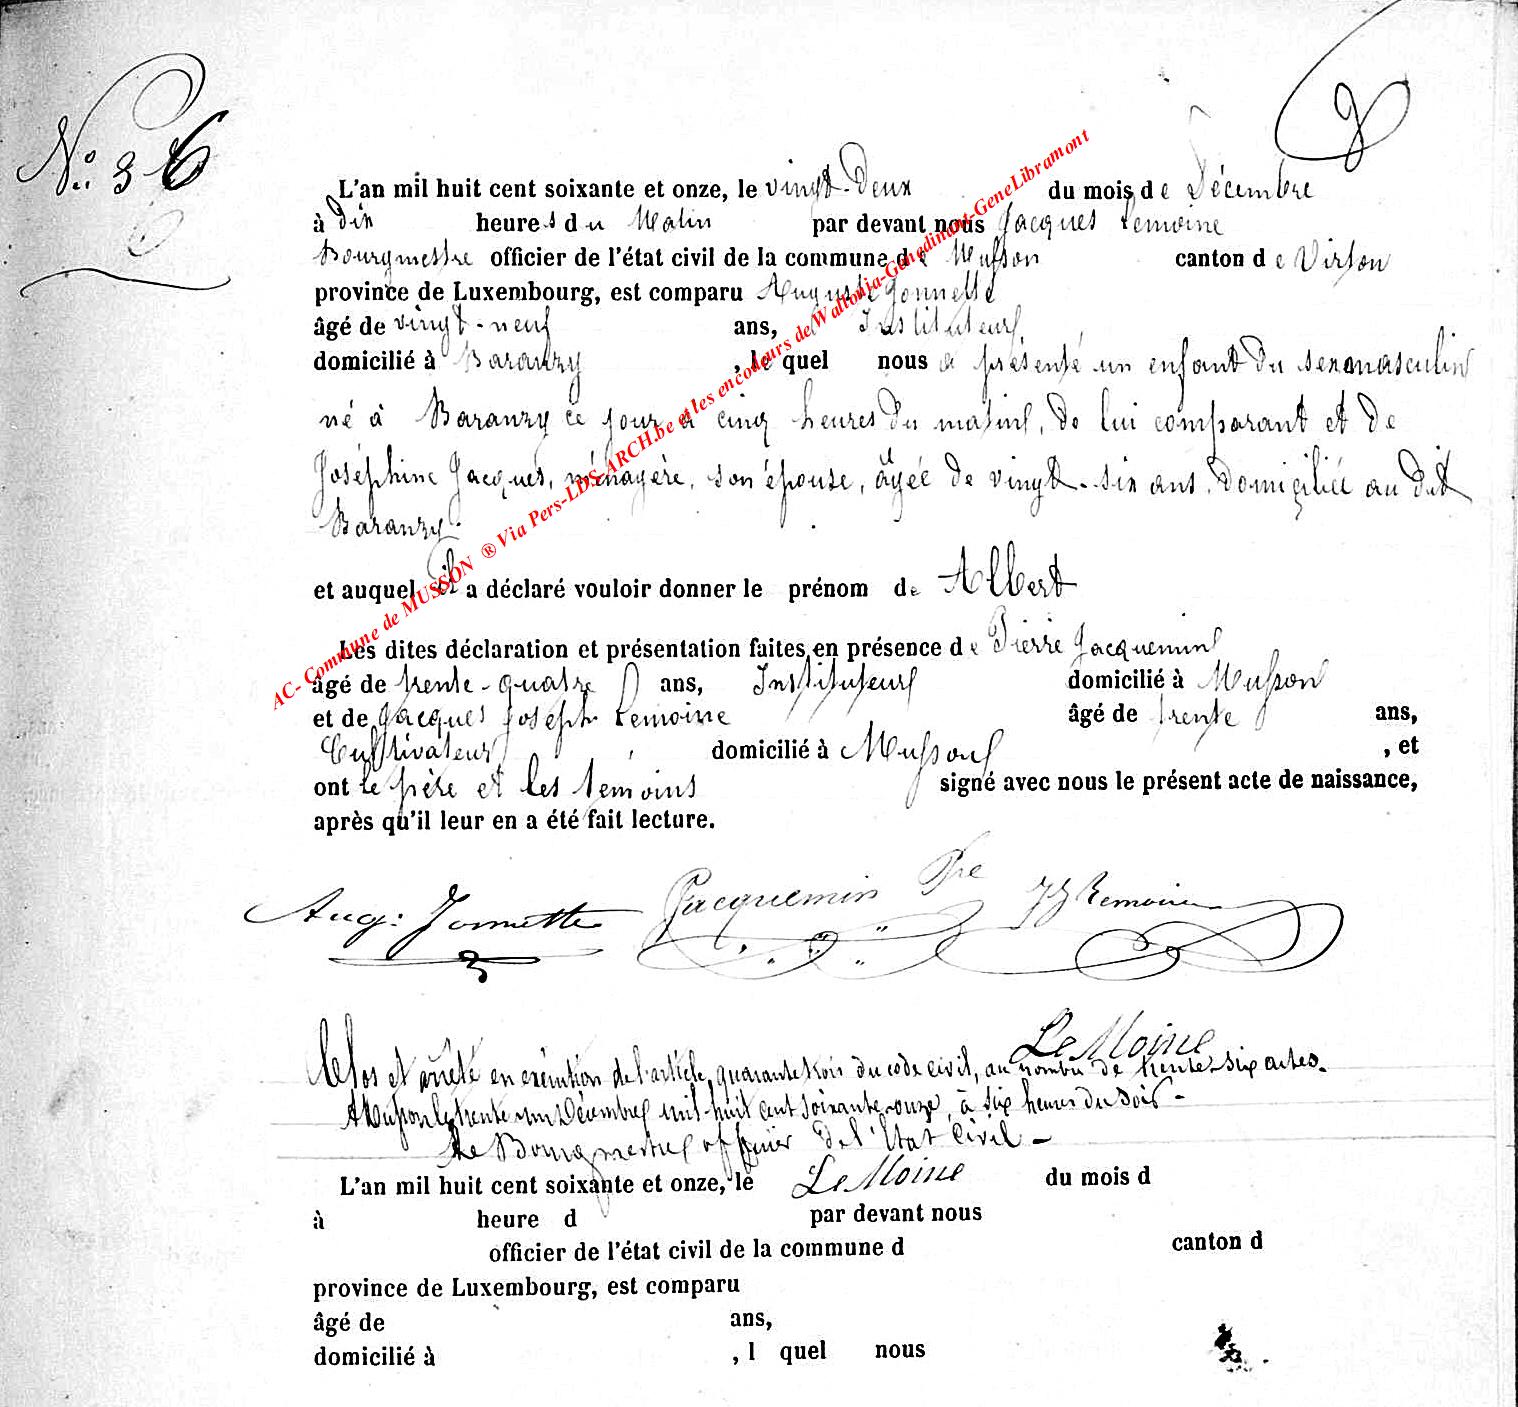 N.° 36
L'an mil huit cent soixante et onze, le vingt-deux du mois de Décembre
à dix heures du Matin par devant nous Jacques Lemoine
Bourgmestre officier de l'état civil de la commune de Musson canton de Virton
province de Luxembourg, est comparu Auguste Jonnette
âgé de vingt-neuf ans, Instituteur
domicilié à Baranzy, le quel nous a présenté un enfant du sexe masculin
né à Baranzy ce jour à cinq heures du matin, de lui comparant et de
Joséphine Jacques, ménagère, son épouse, âgée de vingt-six ans, domiciliée au dit
Baranzy.
et auquel il a déclaré vouloir donner le prénom de Albert
Les dites déclaration et présentation faites en présence de Pierre Jacquemin
âgé de trente-quatre ans, Instituteur domicilié à Musson
et de Jacques Joseph Lemoine âgé de trente ans,
Cultivateur domicilié à Musson, et
ont le père et les témoins signé avec nous le présent acte de naissance,
après qu'il leur en a été fait lecture.
Aug: Jonnette Jacquemin Pre JJ Lemoine
Le Moine
Clos et arrêté en exécution de l'article quarante trois du code civil, au nombre de trente-six actes.
A Musson le trente un Décembre mil huit cent soixante-onze, à six heures du soir -
Le Bourgmestre officier de l'Etat Civil -
L'an mil huit cent soixante et onze, le Le Moine du mois d
à heure d par devant nous
officier de l'état civil de la commune d canton d
province de Luxembourg, est comparu
âgé de ans,
domicilié à , l quel nous
AC- Commune de MUSSON ® Via Pers-LDS-ARCH.be et les encodeurs de Wallonia-Genedinant-GeneLibramont